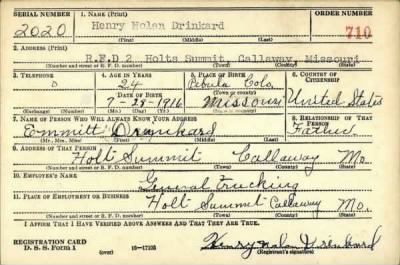 SERIAL NUMBER 1. NAME (Print) ORDER NUMBER
2020 Henry Nolan Drinkard 710
(First) (Middle) (Last)
2. ADDRESS (Print)
R.F.D 2 Holts Summit, Callaway, Missouri
(Number and street or R. F. D. number) (Town) (County) (State)
3. TELEPHONE 4. AGE IN YEARS 5. PLACE OF BIRTH 6. COUNTRY OF CITIZENSHIP
0 24
DATE OF BIRTH (Town or county)
7-28-1916 Missouri United States
(Exchange) (Number) (Mo.) (Day) (Yr.) (State or country)
7. NAME OF PERSON WHO WILL ALWAYS KNOW YOUR ADDRESS 8. RELATIONSHIP OF THAT PERSON
Emmitt Drinkard Father
(Mr., Mrs., Miss) (First) (Middle) (Last)
9. ADDRESS OF THAT PERSON
Holt Summit Callaway Mo.
(Number and street or R. F. D. number) (Town) (County) (State)
10. EMPLOYER'S NAME
General Trucking
11. PLACE OF EMPLOYMENT OR BUSINESS
Holt Summit Callaway Mo.
(Number and street or R. F. D. number) (Town) (County) (State)
I AFFIRM THAT I HAVE VERIFIED ABOVE ANSWERS AND THAT THEY ARE TRUE.
REGISTRATION CARD
D. S. S. Form 1 16-17105 Henry Nolan Drinkard
(Registrant's signature)